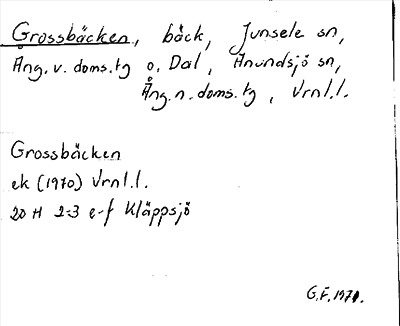 Grossbäcken, bäck, Junsele sn,
Ång. v. doms. tg o. Dal, Anundsjö sn,
Ång. n. doms. tg, Vrnl.l.
Grossbäcken
ek (1970) Vrnl.l.
20 H 2-3 e-f Kläppsjö
G.F. 1971.